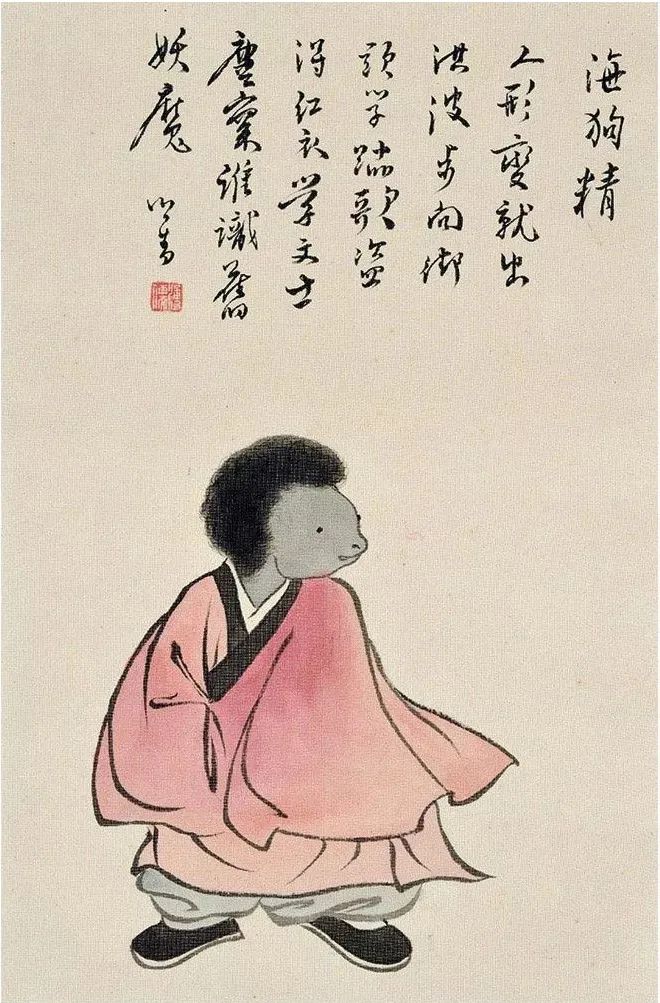 海狗精
人形變就出
洪波步向街
頭學踏歌盜
得紅衣學文士
塵寰誰識舊
妖魔 心畬